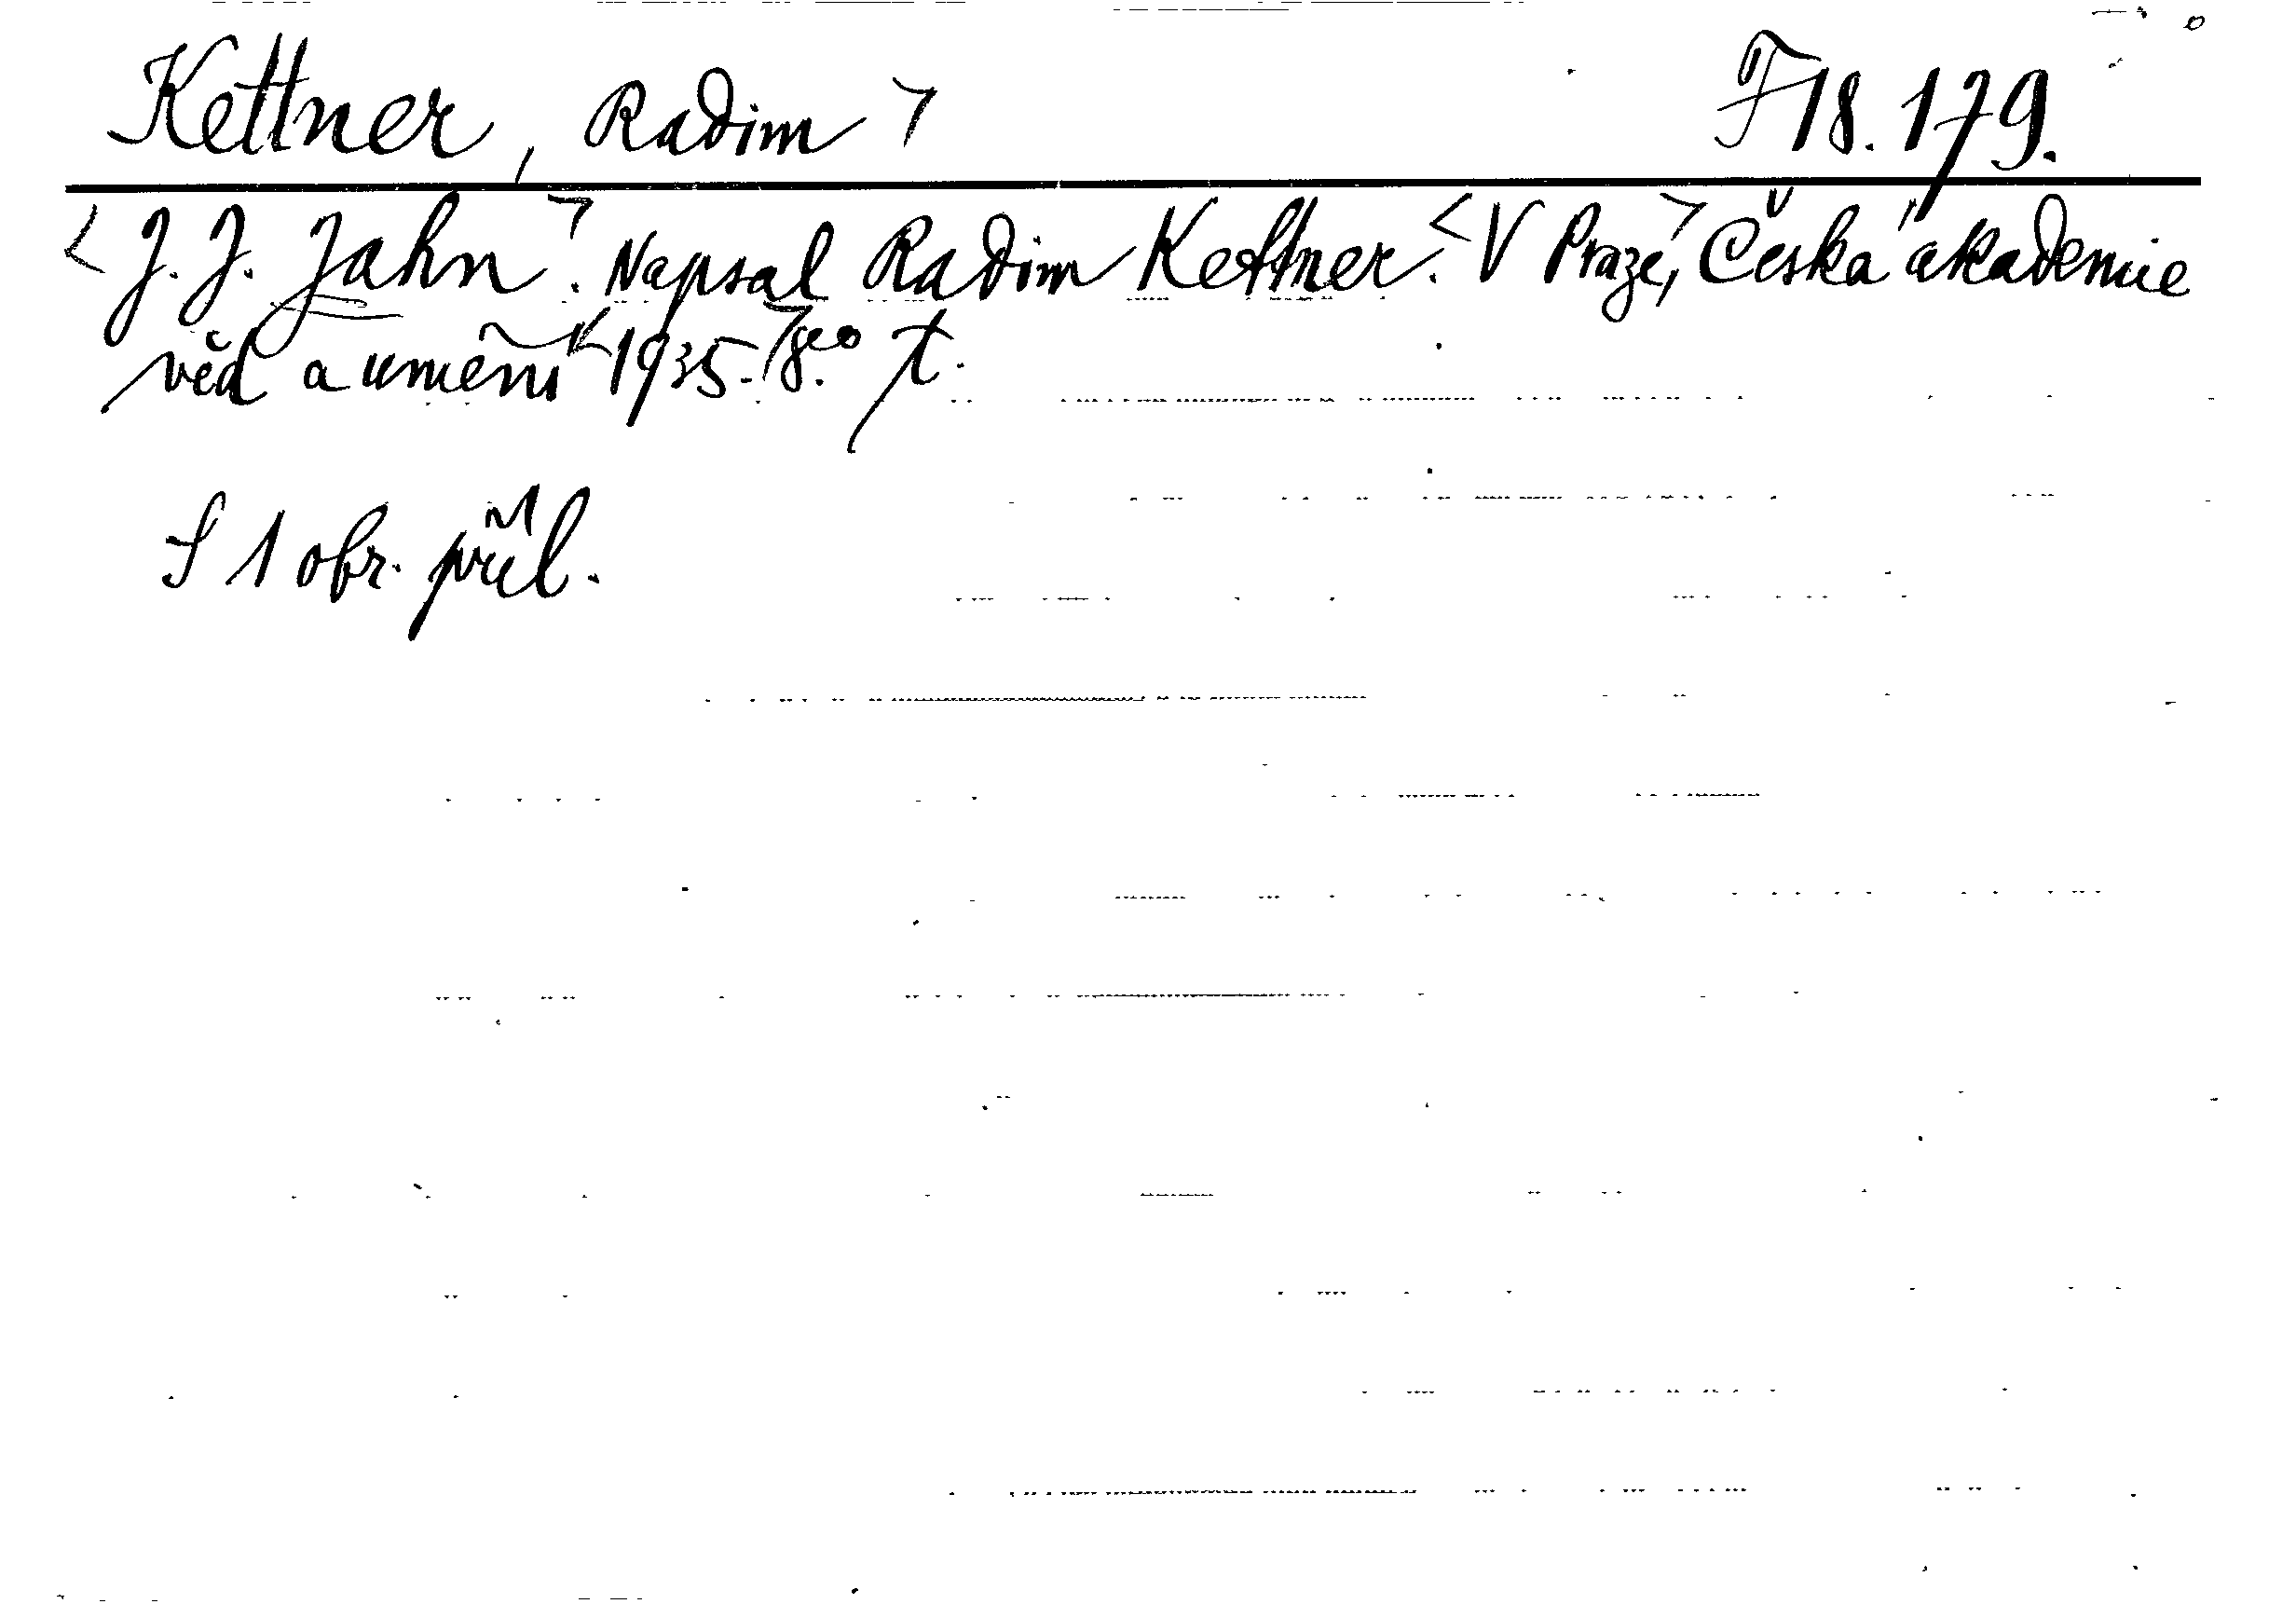 Kettner, Radim > F 18.179.
< J. J. Jahn >. Napsal Radim Kettner. < V Praze, > Česká akademie
věd a umění < 1935. > 8°. t.
S 1 obr. příl.